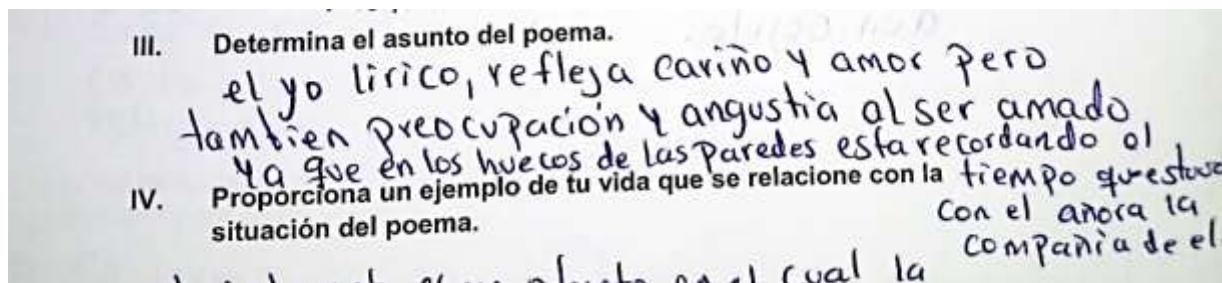 III. Determina el asunto del poema.
el yo lirico, refleja cariño y amor pero
tambien preocupación y angustia al ser amado
ya que en los huecos de las paredes esta recordando el
tiempo que estuvo
con el añora la
compañia de el.
IV. Proporciona un ejemplo de tu vida que se relacione con la
situación del poema.
en el cual la